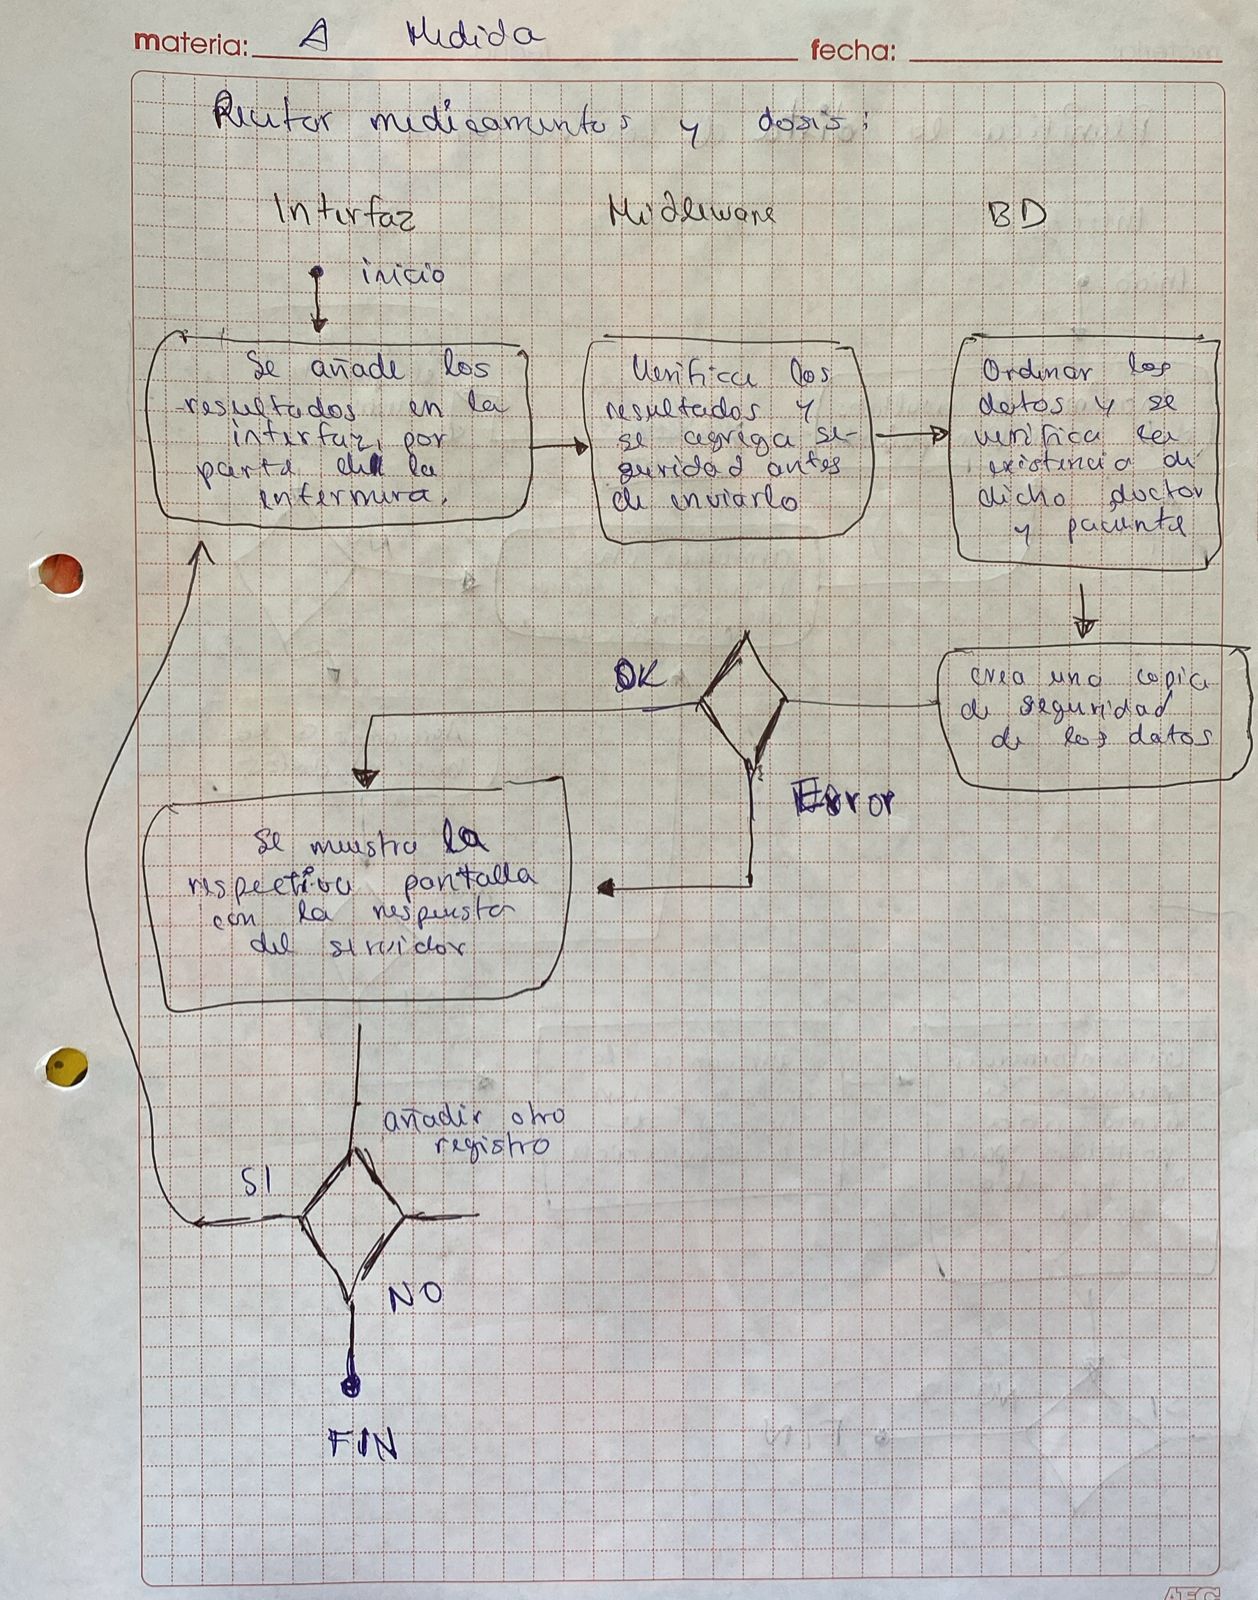 materia: A Medida fecha:
Recitar medicamentos y dosis:
Interfaz Middleware BD
inicio
Se añade los
resultados en la
interfaz, por
parte de la
enfermera.
Verifica los
resultados y
se agrega se-
guridad antes
de enviarlo
Ordenar los
datos y se
verifica la
existencia de
dicho doctor
y paciente
crea una copia
de seguridad
de los datos
OK
Error
Se muestra la
respectiva pantalla
con la respuesta
del servidor
añadir otro
registro
SI
NO
FIN